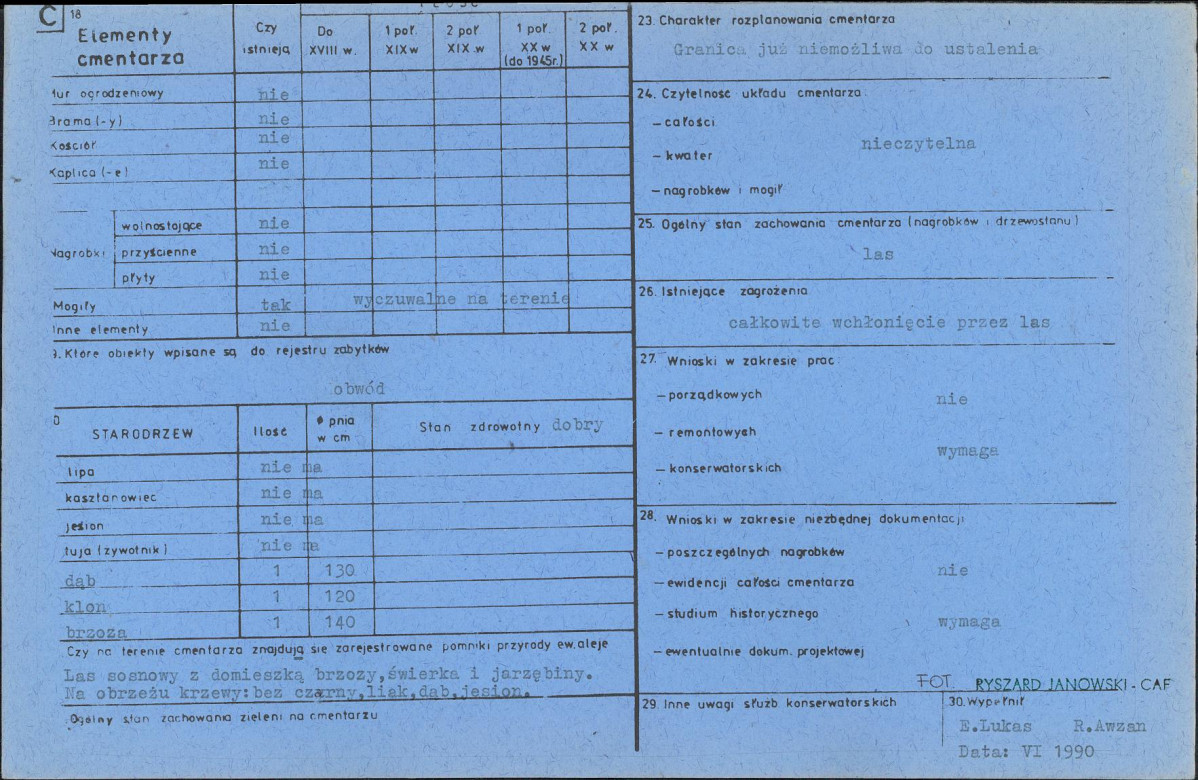 C 18
Elementy
cmentarza
Czy
istnieją
Do
XVIII w.
1 poł.
XIX w
2 poł
XIX w
1 poł.
XX w
(do 1945r.)
2 poł.
XX w
ogrodzeniowy nie
Brama (-y) nie
Kościół nie
Kaplica (-e) nie
Nagrobki
wolnostojące nie
przyścienne nie
płyty nie
Mogiły tak wyczuwalne na terenie
Inne elementy nie
9. Które obiekty wpisane są do rejestru zabytków
obwód
0
STARODRZEW
Ilość
ϕ pnia
w cm
Stan zdrowotny dobry
lipa nie ma
kasztanowiec nie ma
jesion nie ma
tuja (żywotnik) nie ma
dąb 1 130
klon 1 120
brzoza 1 140
Czy na terenie cmentarza znajdują się zarejestrowane pomniki przyrody ew. aleje
Las sosnowy z domieszką brzozy, świerka i jarzębiny.
Na obrzeżu krzewy: bez czarny, liak, dąb, jesion.
Ogólny stan zachowania zieleni na cmentarzu
23. Charakter rozplanowania cmentarza
Granica już niemożliwa do ustalenia
24. Czytelność układu cmentarza:
– całości
nieczytelna
– kwater
– nagrobków i mogił
25. Ogólny stan zachowania cmentarza (nagrobków i drzewostanu)
las
26. Istniejące zagrożenia
całkowite wchłonięcie przez las
27. Wnioski w zakresie prac:
– porządkowych nie
– remontowych
wymaga
– konserwatorskich
28. Wnioski w zakresie niezbędnej dokumentacji
– poszczególnych nagrobków
nie
– ewidencji całości cmentarza
– studium historycznego
wymaga
– ewentualnie dokum. projektowej
FOT. RYSZARD JANOWSKI - CAF
29. Inne uwagi służb konserwatorskich
30. Wypełnił
E.Lukas R.Awzan
Data: VI 1990